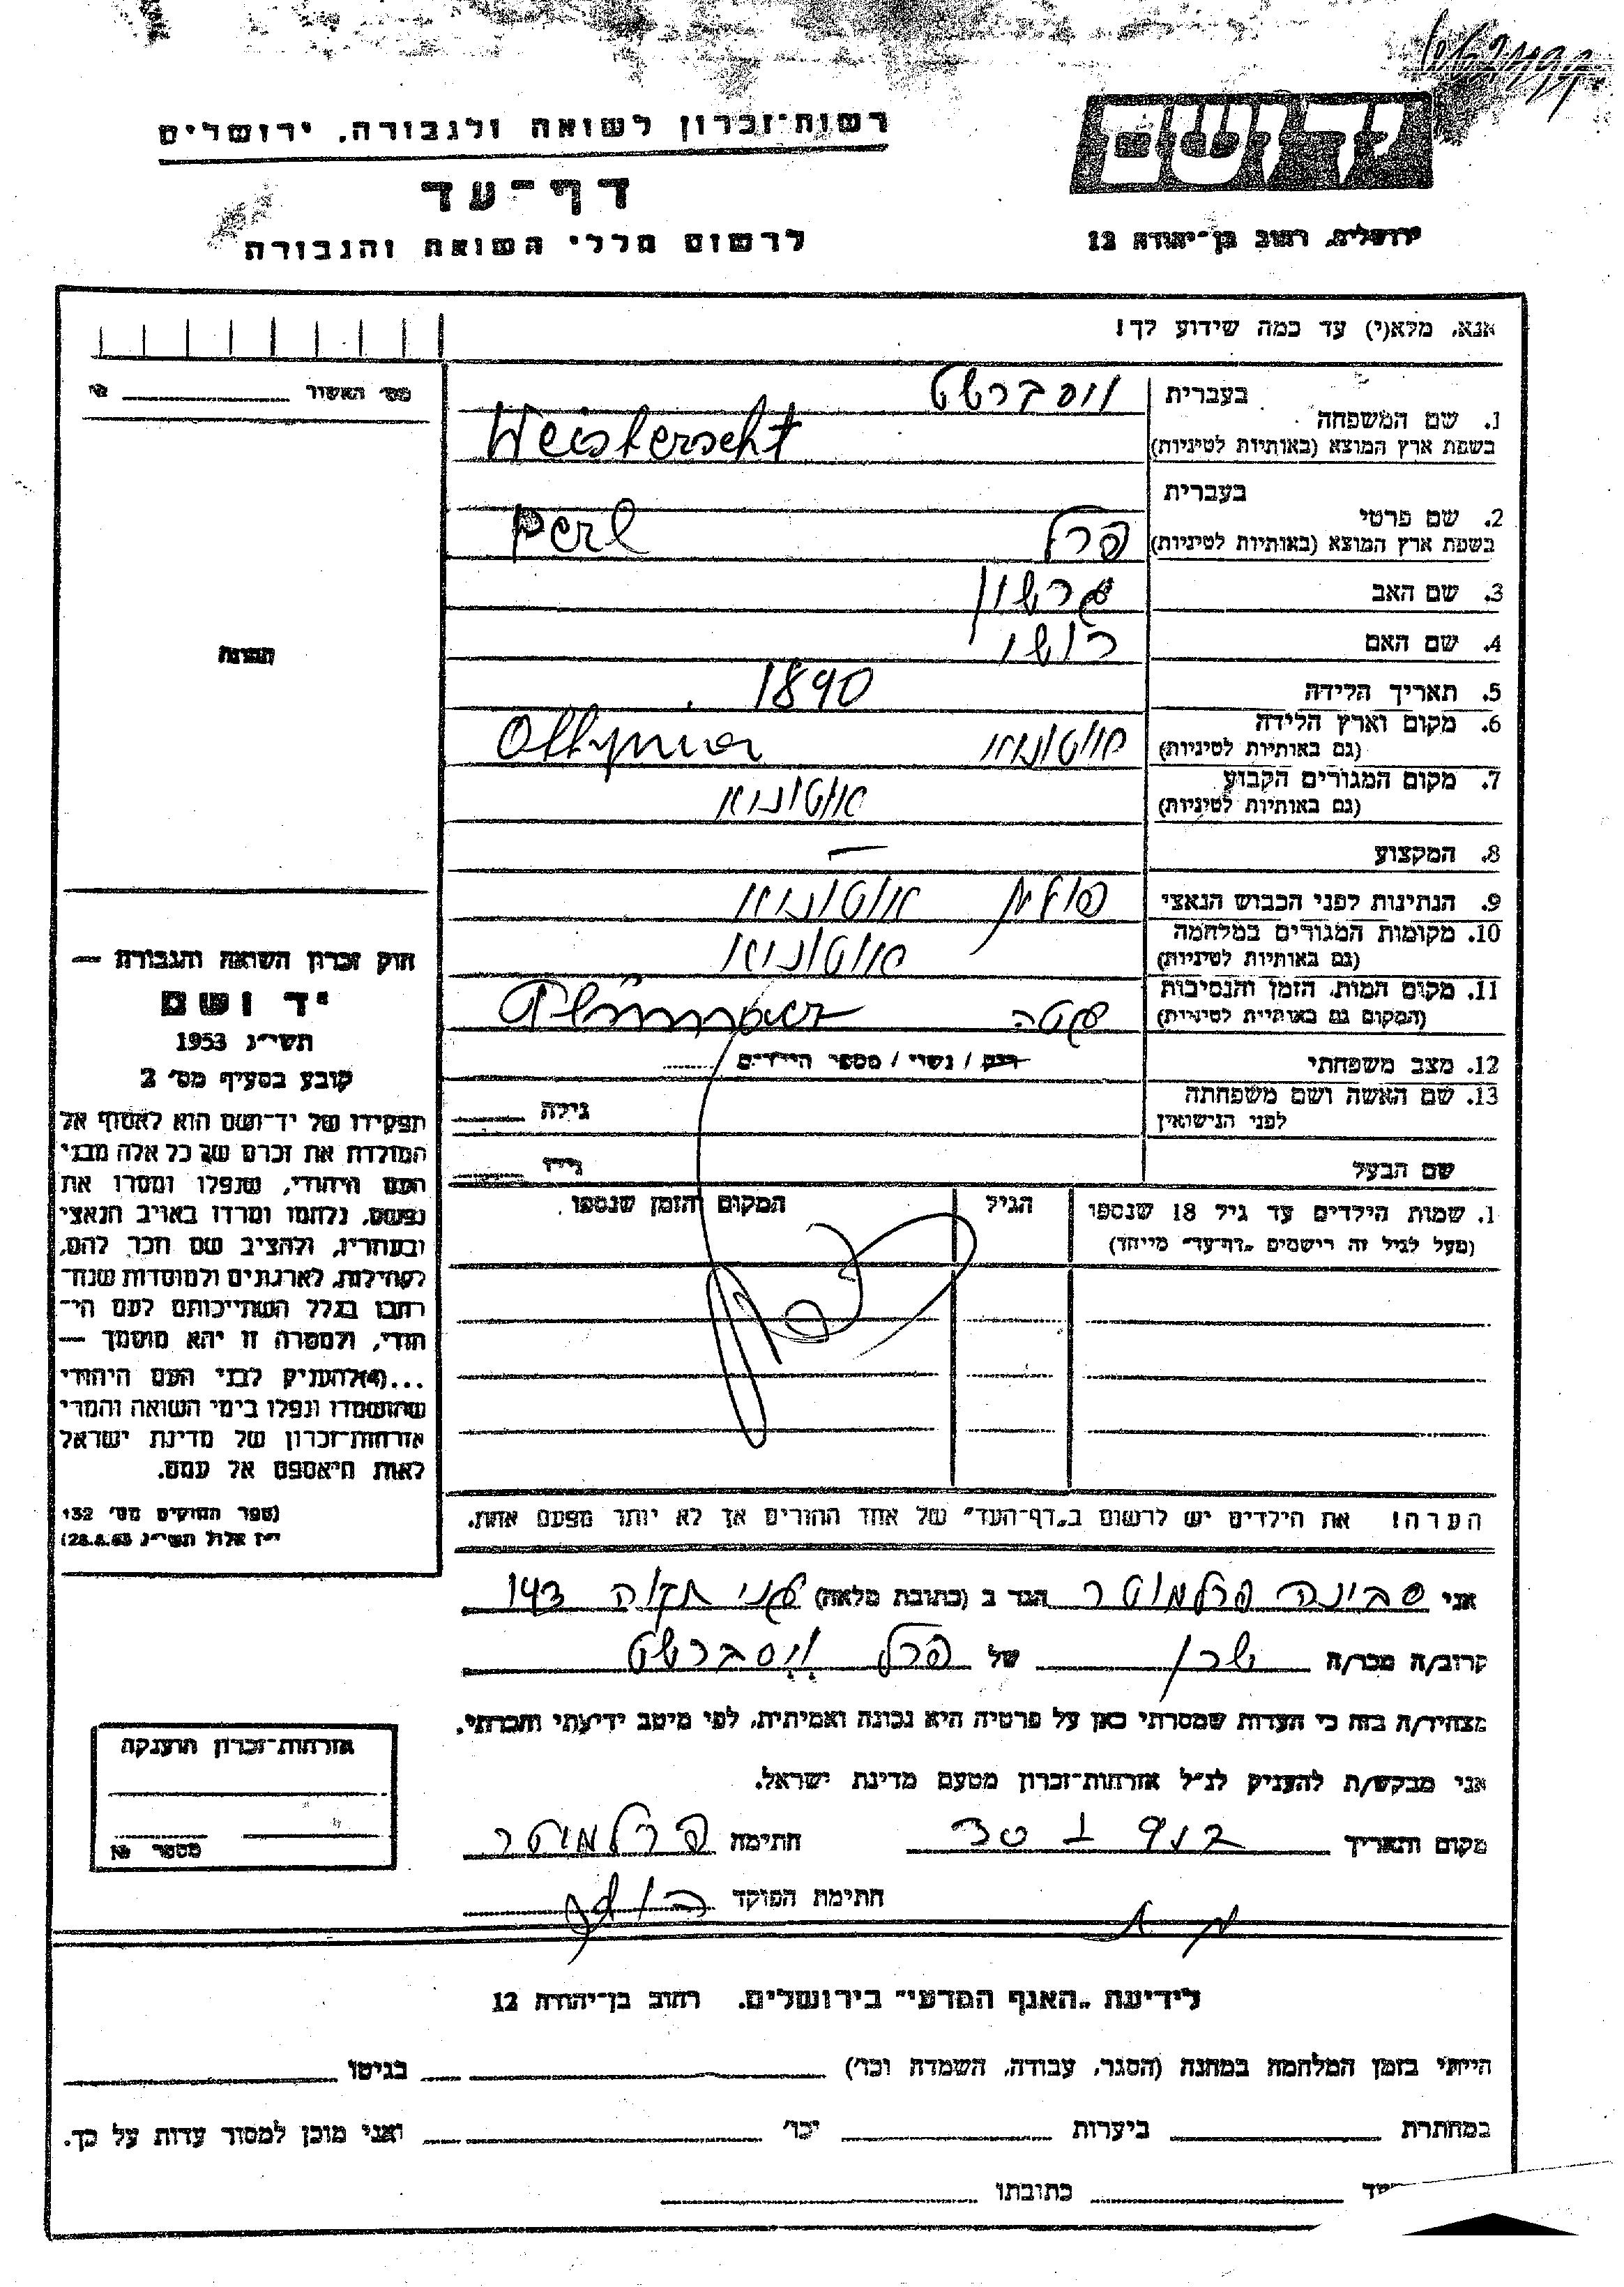 רשות־זכרון לשואה ולגבורה, ירושלים
יד ושם
דף־עד
לרשום חללי השואה והגבורה
ירושלים, רחוב בן־יהודה 12
אנא, מלא(י) עד כמה שידוע לך!
מס' האשור
1. שם המשפחה
בעברית
ווסברשט
בשפת ארץ המוצא (באותיות לטיניות)
Weisberscht
2. שם פרטי
בעברית
פרל
בשפת ארץ המוצא (באותיות לטיניות)
Perl
3. שם האב
גרשון
4. שם האם
רושי
5. תאריך הלידה
1890
6. מקום וארץ הלידה
(גם באותיות לטיניות)
7. מקום המגורים הקבוע
(גם באותיות לטיניות)
8. המקצוע
—
9. הנתינות לפני הכבוש הנאצי
10. מקומות המגורים במלחמה
(גם באותיות לטיניות)
11. מקום המות, הזמן והנסיבות
(המקום גם באותיות לטיניות)
12. מצב משפחתי
רוק / נשוי / מספר הילדים
13. שם האשה ושם משפחתה
לפני הנישואין
גילה
שם הבעל
גילו
1. שמות הילדים עד גיל 18 שנספו
(מעל לגיל זה רישמים "דף־עד" מיוחד)
הגיל
המקום והזמן שנספו
תמונה
חוק זכרון השואה והגבורה —
יד ושם
תשי״ג 1953
קובע בסעיף מס' 2
תפקידו של יד־ושם הוא לאסוף אל
המולדת את זכרם של כל אלה מבני
העם היהודי, שנפלו ומסרו את
נפשם, נלחמו ומרדו באויב הנאצי
ובעוזריו, ולהציב שם וזכר להם,
לקהילות, לארגונים ולמוסדות שנח־
רבו בגלל השתייכותם לעם הי־
הודי, ולמטרה זו יהא מוסמך —
...(4) להעניק לבני העם היהודי
שהושמדו ונפלו בימי השואה והמרי
אזרחות־זכרון של מדינת ישראל
לאות היאספם אל עמם.
(ספר החוקים מס' 132
י״ז אלול תשי״ג 28.8.53)
הערה! את הילדים יש לרשום ב"דף־העד" של אחד ההורים אך לא יותר מפעם אחת.
אני סבינה פרלמוטר הגר ב (כתובת מלאה) 143
קרוב/ה מכר/ה שכן של פרל וַסברשט
מצהיר/ה בזה כי העדות שמסרתי כאן על פרטיה היא נכונה ואמיתית, לפי מיטב ידיעתי והכרתי.
אני מבקש/ת להעניק לנ״ל אזרחות־זכרון מטעם מדינת ישראל.
מקום ותאריך
חתימה פרלמוטר
חתימת הפוקד
אזרחות־זכרון הוענקה
מספר №
לידיעת "האגף המדעי" בירושלים. רחוב בן־יהודה 12
הייתי בזמן המלחמה במחנה (הסגר, עבודה, השמדה וכו') בגיטו
במחתרת ביערות וכו' ואני מוכן למסור עדות על כך.
כתובתו